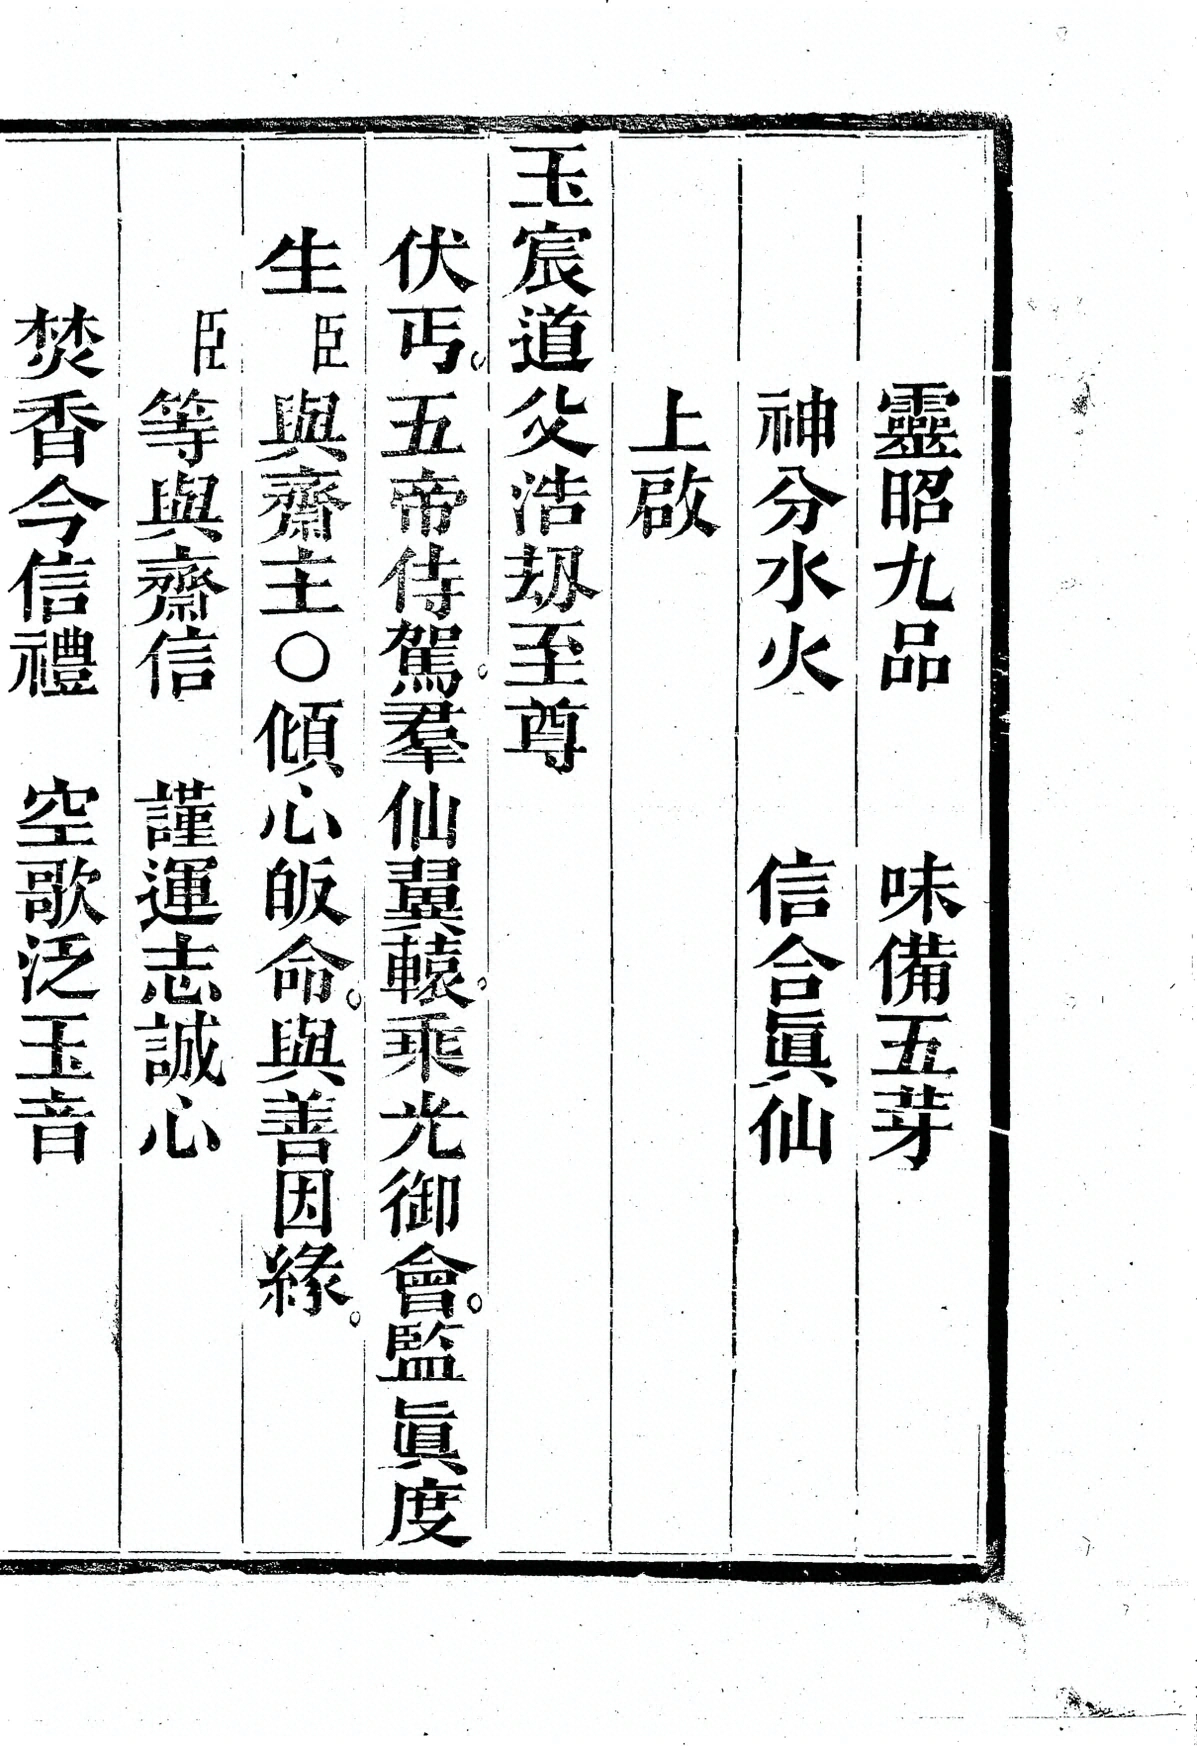 靈昭九品　味備五芽
神分水火　信合眞仙
上啟
玉宸道父浩刼至尊
伏丐。五帝侍駕。羣仙翼轅。乘光御會。監眞度
生臣與齋主〇傾心皈命。與善因緣。
臣等與齋信　謹運志誠心
焚香今信禮　空歌泛玉音